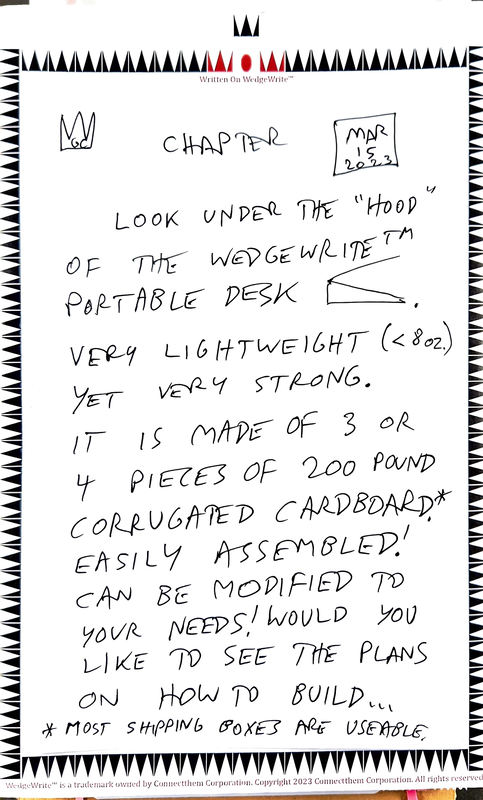 Written On WedgeWrite™
GC
CHAPTER
MAR
15
2023
LOOK UNDER THE "HOOD"
OF THE WEDGEWRITE™
PORTABLE DESK .
VERY LIGHTWEIGHT (<8oz.)
YET VERY STRONG.
IT IS MADE OF 3 OR
4 PIECES OF 200 POUND
CORRUGATED CARDBOARD.*
EASILY ASSEMBLED!
CAN BE MODIFIED TO
YOUR NEEDS! WOULD YOU
LIKE TO SEE THE PLANS
ON HOW TO BUILD...
* MOST SHIPPING BOXES ARE USEABLE.
WedgeWrite™ is a trademark owned by Connectthem Corporation. Copyright 2023 Connectthem Corporation. All rights reserved